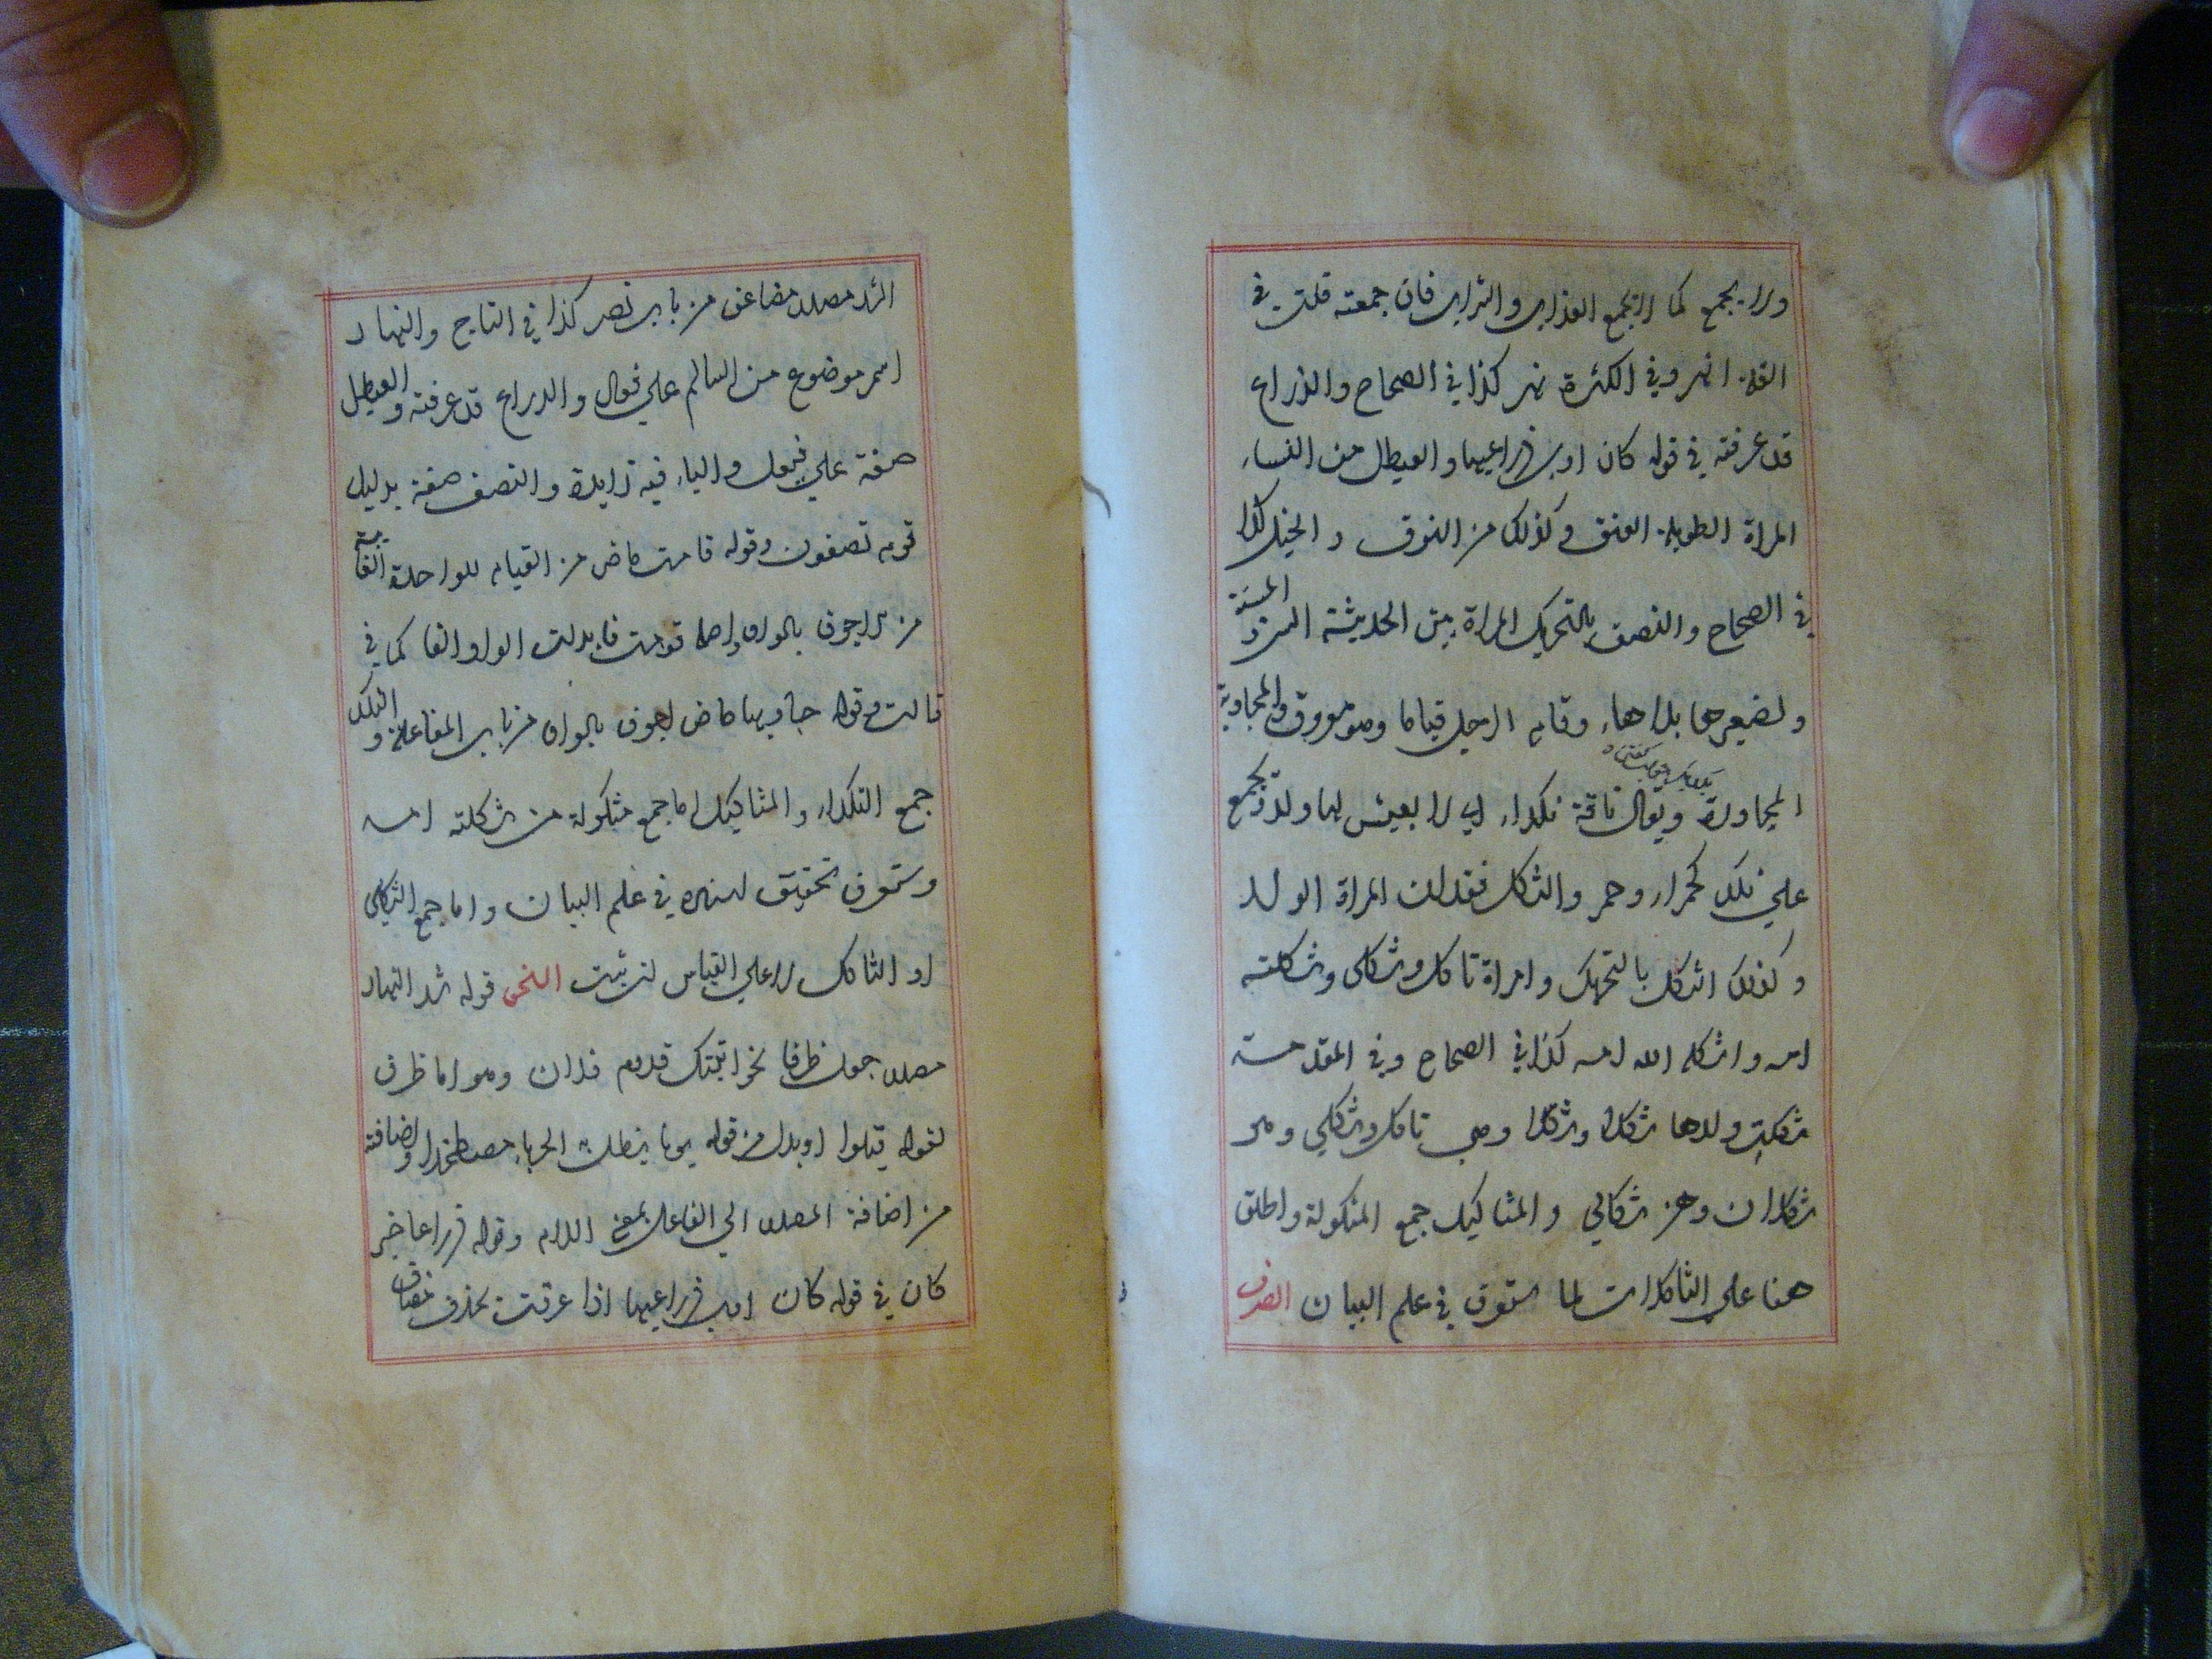 ولا يجمع كما لا يجمع العذاب والشراب فان جمعته قلت في
القلة انهر وفي الكثرة نهر كذا في الصحاح والذراع
قد عرفته في قوله كان اوب ذراعيها والعيطل من النساء
المراة الطويلة العنق وكذلك من النوق والخيل كذا
في الصحاح والنصف بالتحريك المراة بين الحديثة والمسنة
وتصغيرها بلا هاء وقام الرجل قياما وهو معروف والمجاوبة
المحاورة ويقال ناقة نكداء اي لا يعيش لها ولد وتجمع
على نكد كحمراء وحمر والثكل فقدان المراة الولد
وكذلك الثكل بالتحريك وامراة ثاكل وثكلى وثكلته
امه واثكله الله امه كذا في الصحاح وفي المقدمة
ثكلت ولدها ثكلا وثكلا وهي ثاكل وثكلي وهو
ثكلان وهن ثكالي والمثاكيل جمع المثكولة واطلق
هنا علي الثاكلات لما ستعرف في علم البيان الصرف
الشد مصدر مضاعف من باب نصر كذا في التاج والنهار
اسم موضوع من السالم علي فعال والذراع قد عرفته والعيطل
صفة علي فيعل والياء فيه زايدة والنصف صفة بدليل
قولهم نصفون وقوله قامت ماض من القيام للواحدة الغائبة
من الاجوف بالواو واصله قومت فابدلت الواو الفا كما في
قالت وقوله جاوبها ماض اجوف بالواو من باب المفاعلة والنكد
جمع النكداء والمثاكيل اما جمع مثكولة من ثكلته امه
وستعرف تحقيق لهذه في علم البيان واما جمع الثكلى
او الثاكل لا على القياس ان ثبت النحو قوله شد النهار
مصدر جعل ظرفا نحو اتيتك قدوم فلان وهو اما ظرف
لقوله قيلوا او بدل من قوله يوما يظل به الحرباء مصطخدا واضافته
من اضافة المصدر الي الفاعل بمعنى اللام وقوله ذراعا خبر
كان في قوله كان اوب ذراعيها اذا عرقت بحذف مضاف